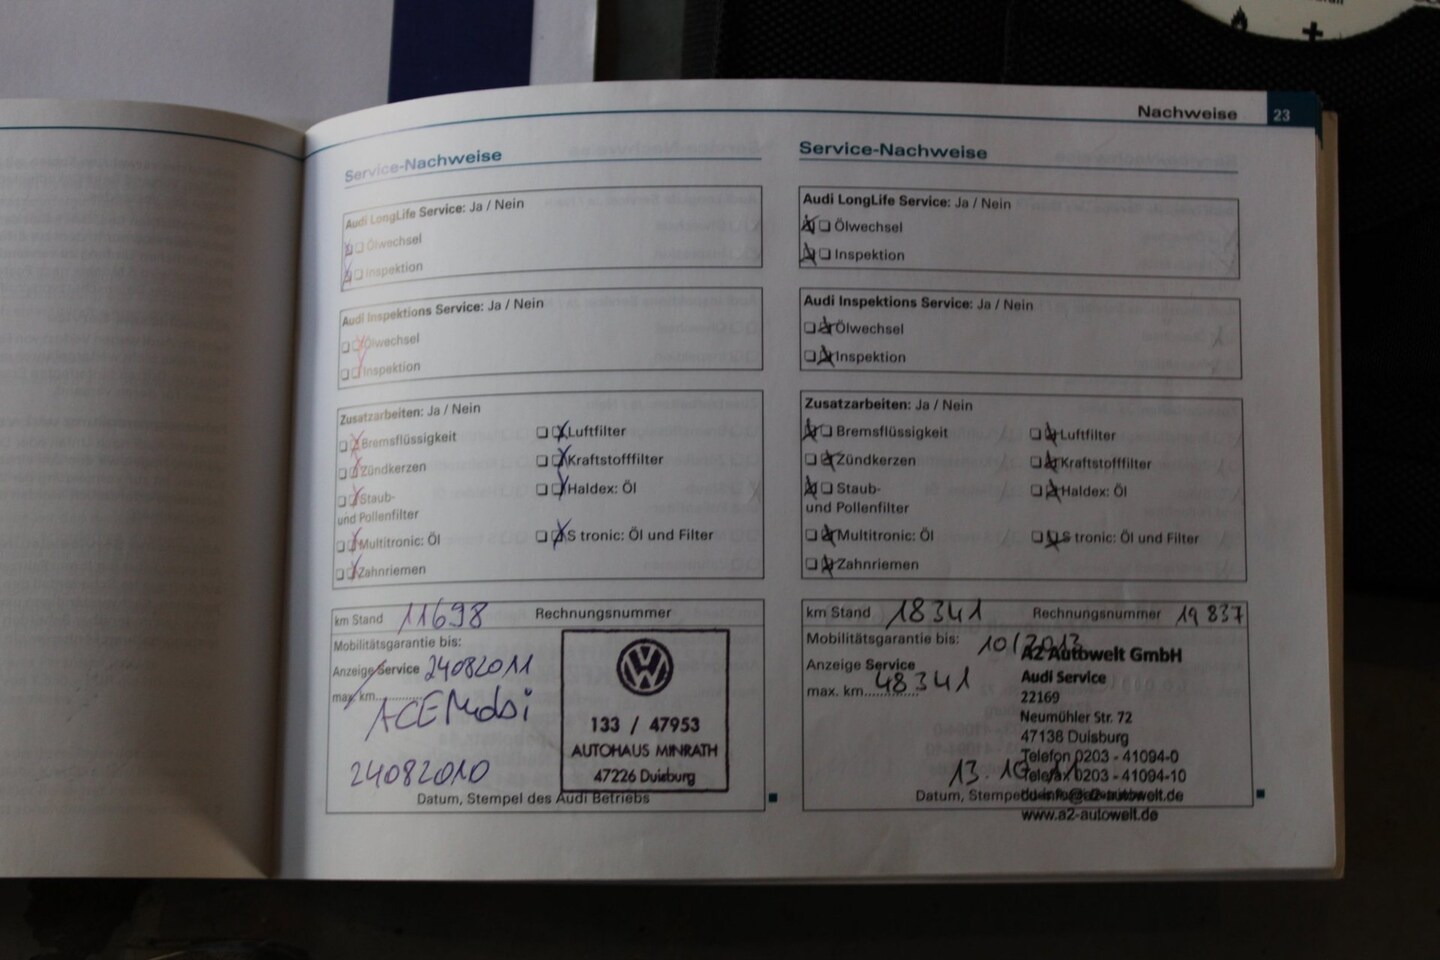 Nachweise 23
Service-Nachweise
Audi LongLife Service: Ja / Nein
Ölwechsel
Inspektion
Audi Inspektions Service: Ja / Nein
Ölwechsel
Inspektion
Zusatzarbeiten: Ja / Nein
Bremsflüssigkeit
Zündkerzen
Staub-
und Pollenfilter
Multitronic: Öl
Zahnriemen
Luftfilter
Kraftstofffilter
Haldex: Öl
S tronic: Öl und Filter
km Stand 11698 Rechnungsnummer
Mobilitätsgarantie bis:
Anzeige Service 24082011
max. km
24082010
133 / 47953
AUTOHAUS MINRATH
47226 Duisburg
Datum, Stempel des Audi Betriebs
Service-Nachweise
Audi LongLife Service: Ja / Nein
Ölwechsel
Inspektion
Audi Inspektions Service: Ja / Nein
Ölwechsel
Inspektion
Zusatzarbeiten: Ja / Nein
Bremsflüssigkeit
Zündkerzen
Staub-
und Pollenfilter
Multitronic: Öl
Zahnriemen
Luftfilter
Kraftstofffilter
Haldex: Öl
S tronic: Öl und Filter
km Stand 18341 Rechnungsnummer 19 837
Mobilitätsgarantie bis: 10/2013
Anzeige Service
max. km 48341
A2 Autowelt GmbH
Audi Service
22169
Neumühler Str. 72
47138 Duisburg
Telefon 0203 - 41094-0
Telefax 0203 - 41094-10
13. 10
Datum,
www.a2-autowelt.de